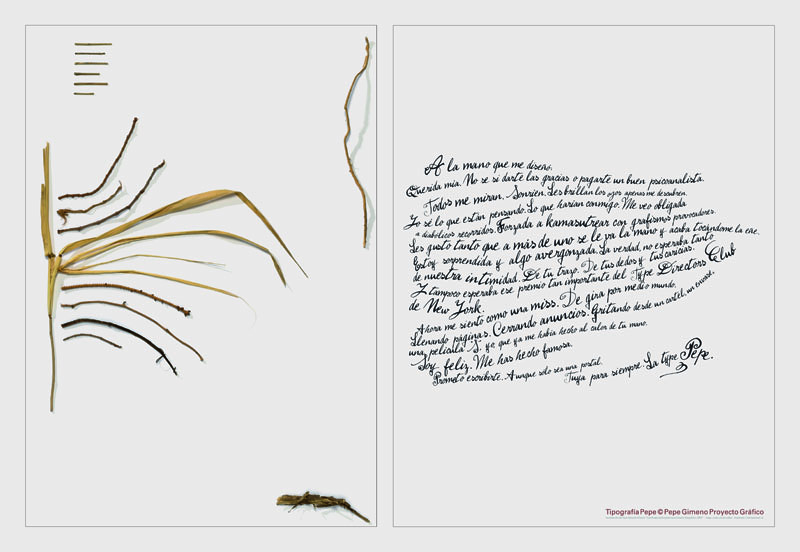 A la mano que me diseñó.
Querida mía. No se si darte las gracias o pagarte un buen psicoanalista.
Todos me miran. Sonríen. Les brillan los ojos apenas me descubren.
Yo sé lo que están pensando. Lo que harían conmigo. Me veo obligada
a diabólicos recorridos. Forzada a kamasutrear con grafismos provocadores.
Les gusto tanto que a más de uno se le va la mano y acaba tocándome la eñe.
Estoy sorprendida y algo avergonzada. La verdad, no esperaba tanto
de nuestra intimidad. De tu trazo. De tus dedos y tus caricias.
Y tampoco esperaba ese premio tan importante del Type Directors Club
de New York.
Ahora me siento como una miss. De gira por medio mundo.
Llenando páginas. Cerrando anuncios. Gritando desde un cartel, un envase,
una película. Sí, yo que ya me había hecho al calor de tu mano.
Soy feliz. Me has hecho famosa.
Prometo escribirte. Aunque sólo sea una postal.
Tuya para siempre. La type Pepe.
Tipografía Pepe © Pepe Gimeno Proyecto Gráfico